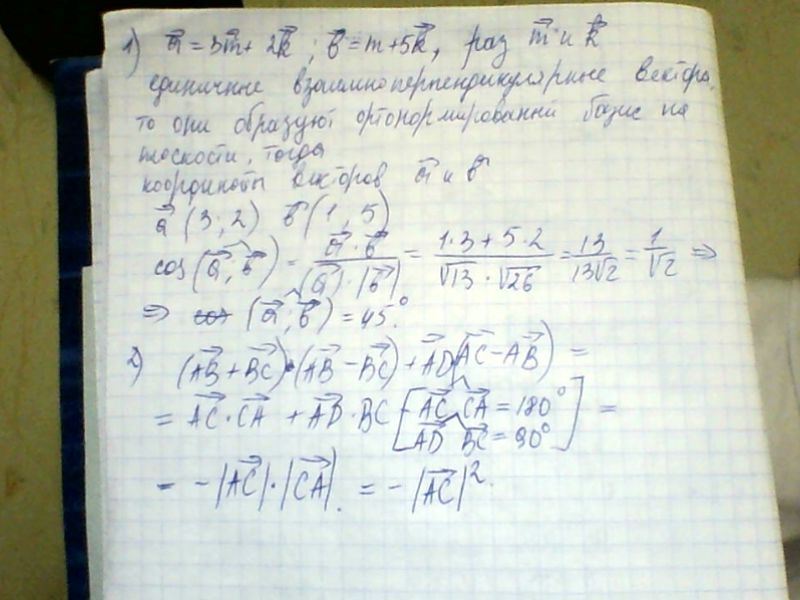 1) a⃗ = 3m⃗ + 2k⃗ ; b⃗ = m + 5k⃗, раз m⃗ и k⃗
единичные взаимноперпендикулярные вектора,
то они образуют ортонормированный базис на
плоскости, тогда
координаты векторов a⃗ и b⃗
a⃗ (3; 2) b⃗ (1, 5)
cos (a⃗, b⃗) = a⃗ · b⃗ / |a⃗| · |b⃗| = 1·3 + 5·2 / √13 · √26 = 13 / 13√2 = 1 / √2 ⇒
⇒ (a⃗; b⃗) = 45°.
2) (AB⃗ + BC⃗) · (AB⃗ − BC⃗) + AD⃗(AC⃗ − AB⃗) =
= AC⃗ · CA⃗ + AD⃗ · BC [AC⃗ CA⃗ = 180°
AD⃗ BC⃗ = 90°] =
= − |AC⃗| · |CA⃗|. = − |AC⃗|².